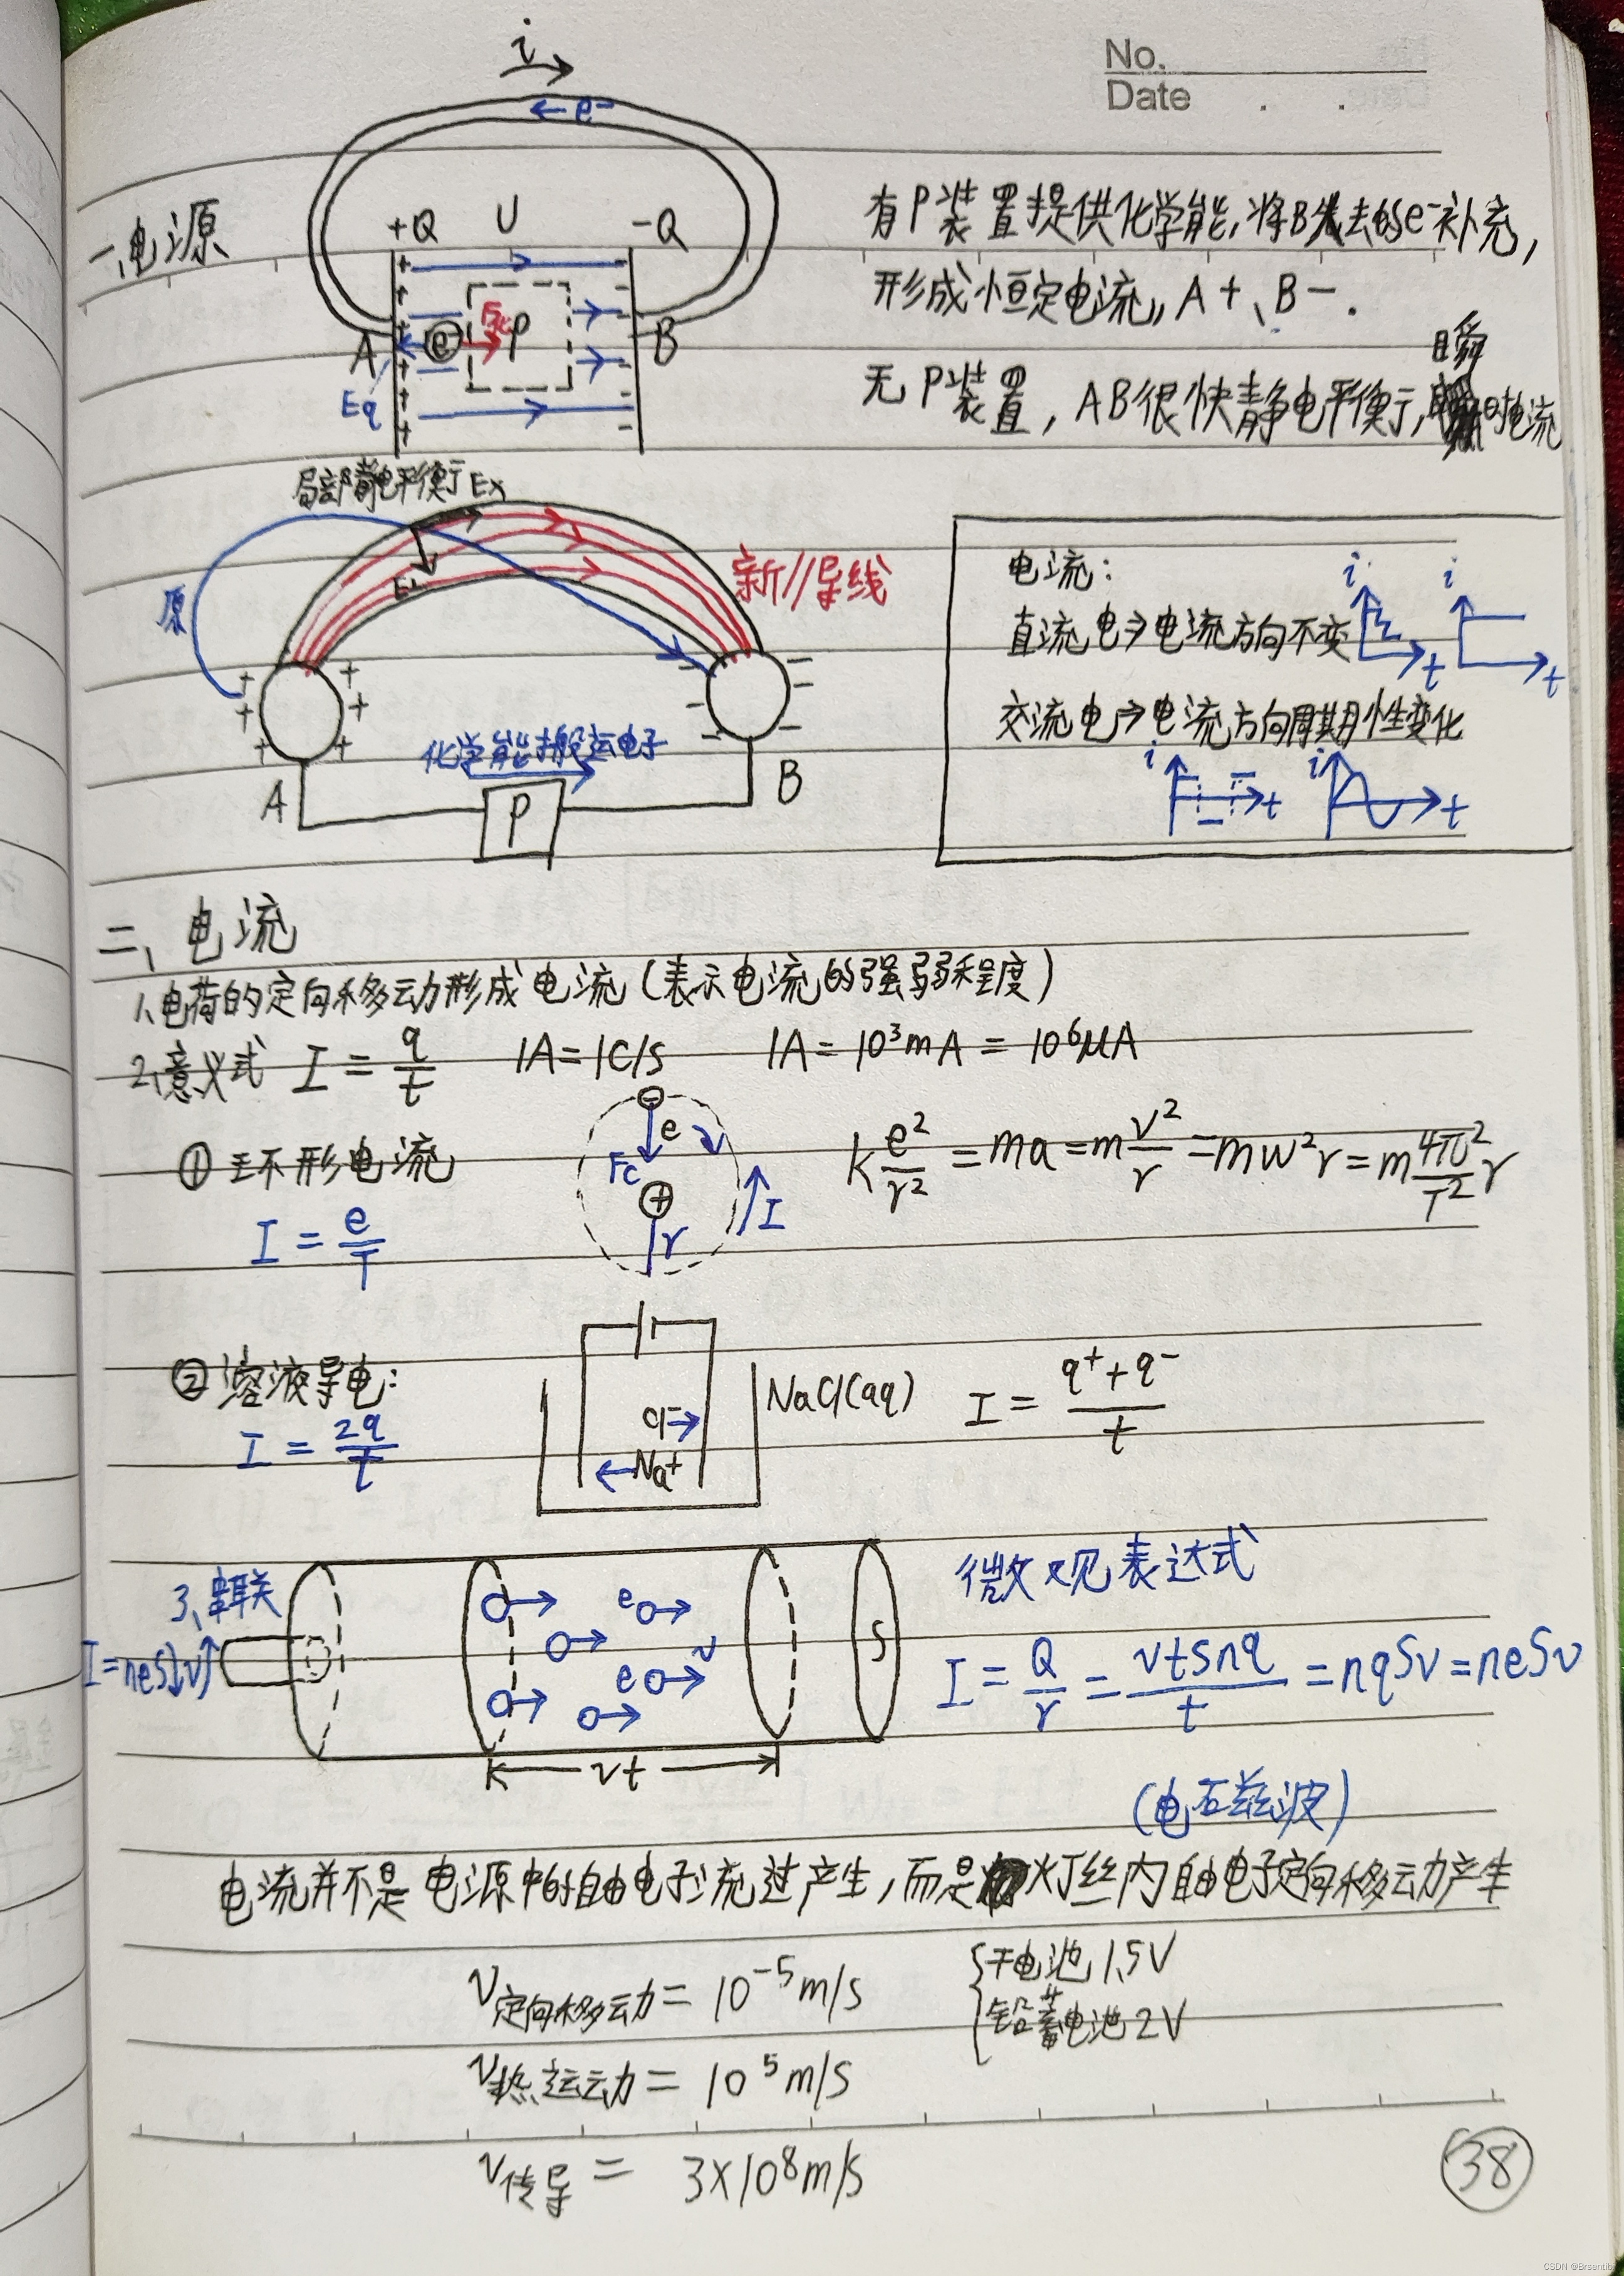 No.
Date
i
← e⁻
一、电源
+Q U -Q
有P装置提供化学能,将B失去的e⁻补充,
形成恒定电流,A+、B-.
A e P B
Eq
无P装置,AB很快静电平衡,瞬时电流
局部静电平衡 Ex
新//导线
原
化学能搬运电子
A P B
电流:
直流电→电流方向不变
i t i t
交流电→电流方向周期性变化
i t i t
二、电流
1、电荷的定向移动形成电流(表示电流的强弱程度)
2、意义式 I = q/t 1A=1C/s 1A=10³mA=10⁶μA
① 环形电流
I = e/T
e Fc r I
k e²/r² = ma = m v²/r = mw²r = m 4π²/T² r
② 溶液导电:
I = 2q/t
cl⁻→
←Na⁺
NaCl(aq) I = (q⁺+q⁻)/t
3、串联
I=neS↓v↑
e e v S
vt
微观表达式
I = Q/r = vtsnq/t = nqSv = neSv
(电磁波)
电流并不是电源中的自由电子流过产生,而是灯丝内自由电子定向移动产生
v定向移动 = 10⁻⁵m/s
干电池 1.5V
铅蓄电池 2V
v热运动 = 10⁵m/s
v传导 = 3×10⁸m/s
38
CSDN @Brsentib